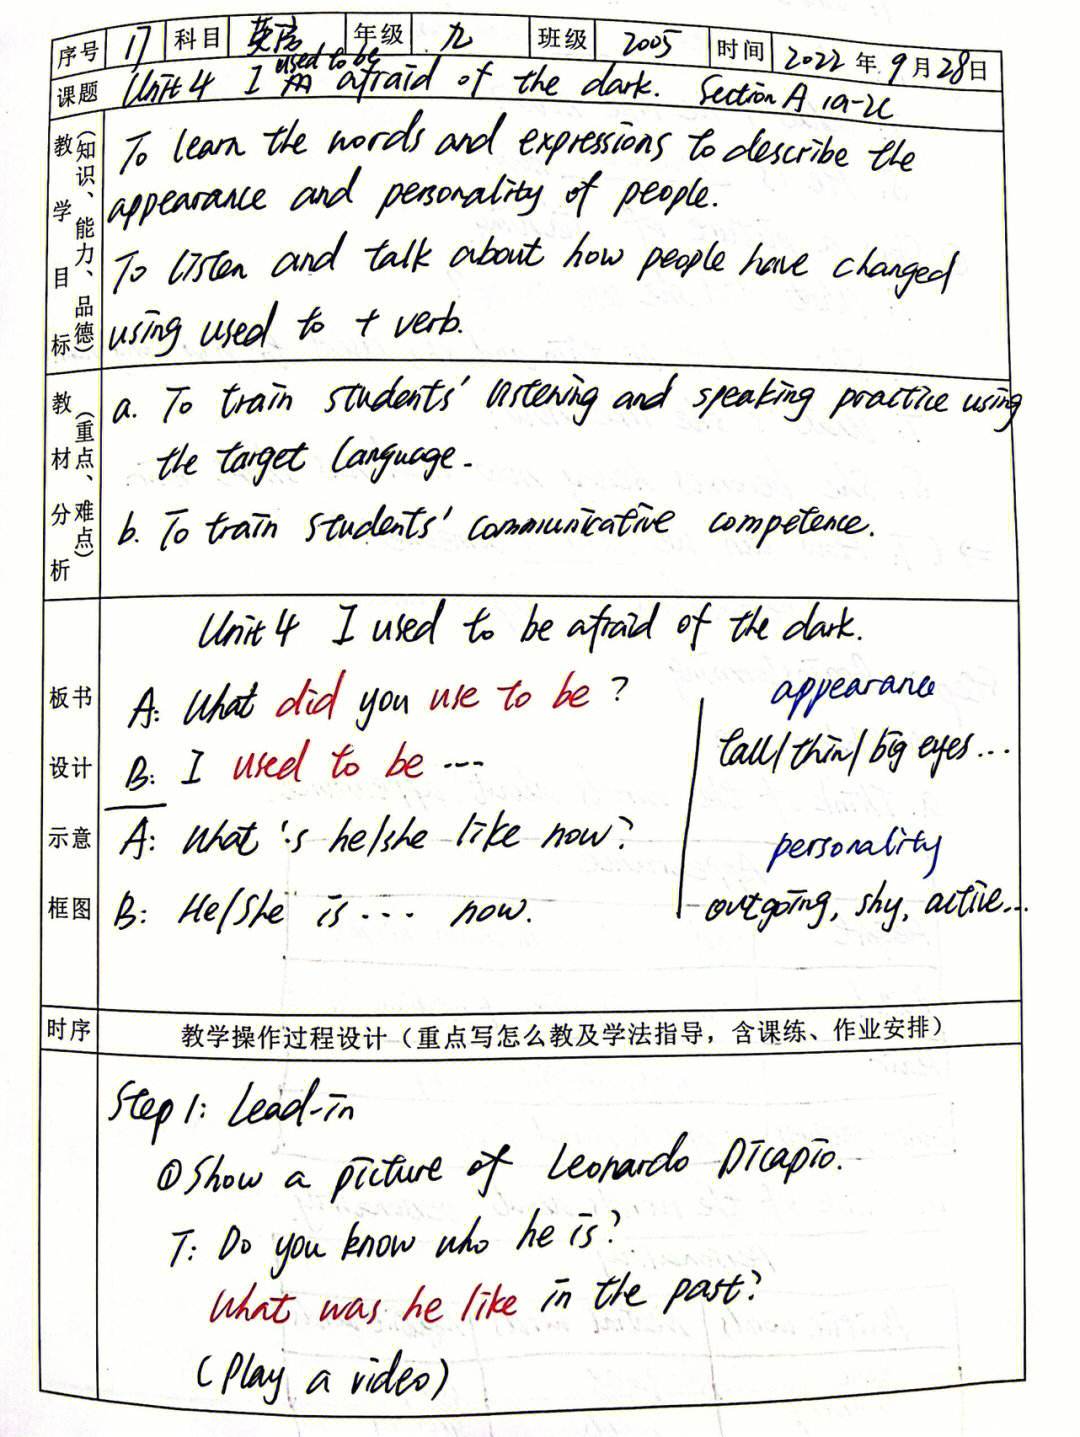 序号 17 科目 英语 年级 九 班级 2005 时间 2022年9月28日
used to be
课题 Unit 4 I afraid of the dark. Section A 1a-2c
教学目标（知识、能力、品德）
To learn the words and expressions to describe the
appearance and personality of people.
To listen and talk about how people have changed
using used to + verb.
教材分析（重点、难点）
a. To train students' listening and speaking practice using
the target language.
b. To train students' communicative competence.
板书
设计
示意
框图
Unit 4 I used to be afraid of the dark.
A: What did you use to be?
B: I used to be ...
A: What's he/she like now?
B: He/She is ... now.
appearance
tall/thin/big eyes...
personality
outgoing, shy, active...
时序 教学操作过程设计（重点写怎么教及学法指导，含课练、作业安排）
Step 1: Lead-in
①Show a picture of Leonardo Dicapio.
T: Do you know who he is?
What was he like in the past?
(Play a video)